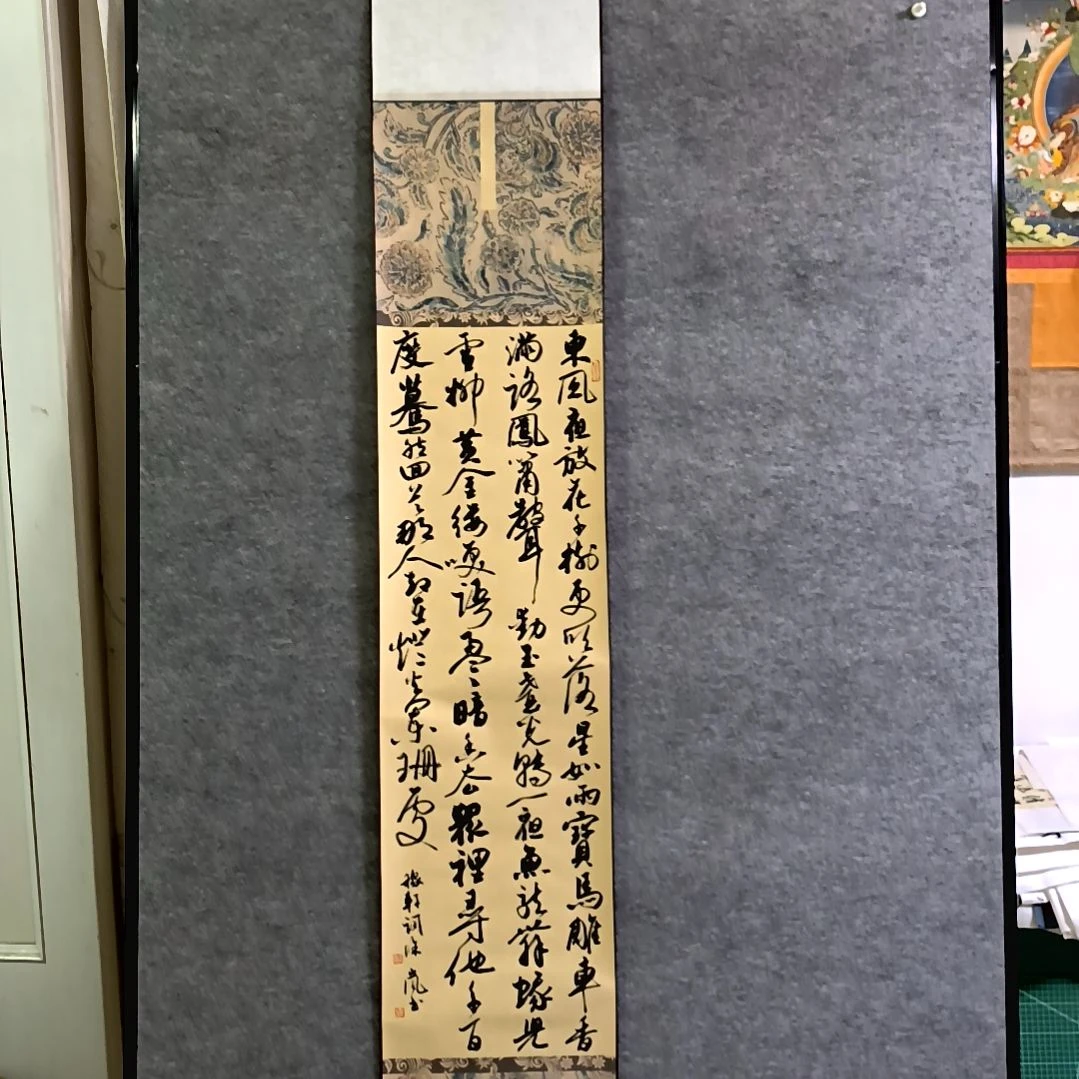 東風夜放花千樹更吹落星如雨寶馬雕車香
滿路鳳簫聲動玉壺光轉一夜魚龍舞蛾兒
雪柳黃金縷笑語盈〻暗香去眾裡尋他千百
度驀然回首那人卻在燈火闌珊處
稼軒詞 嵐書